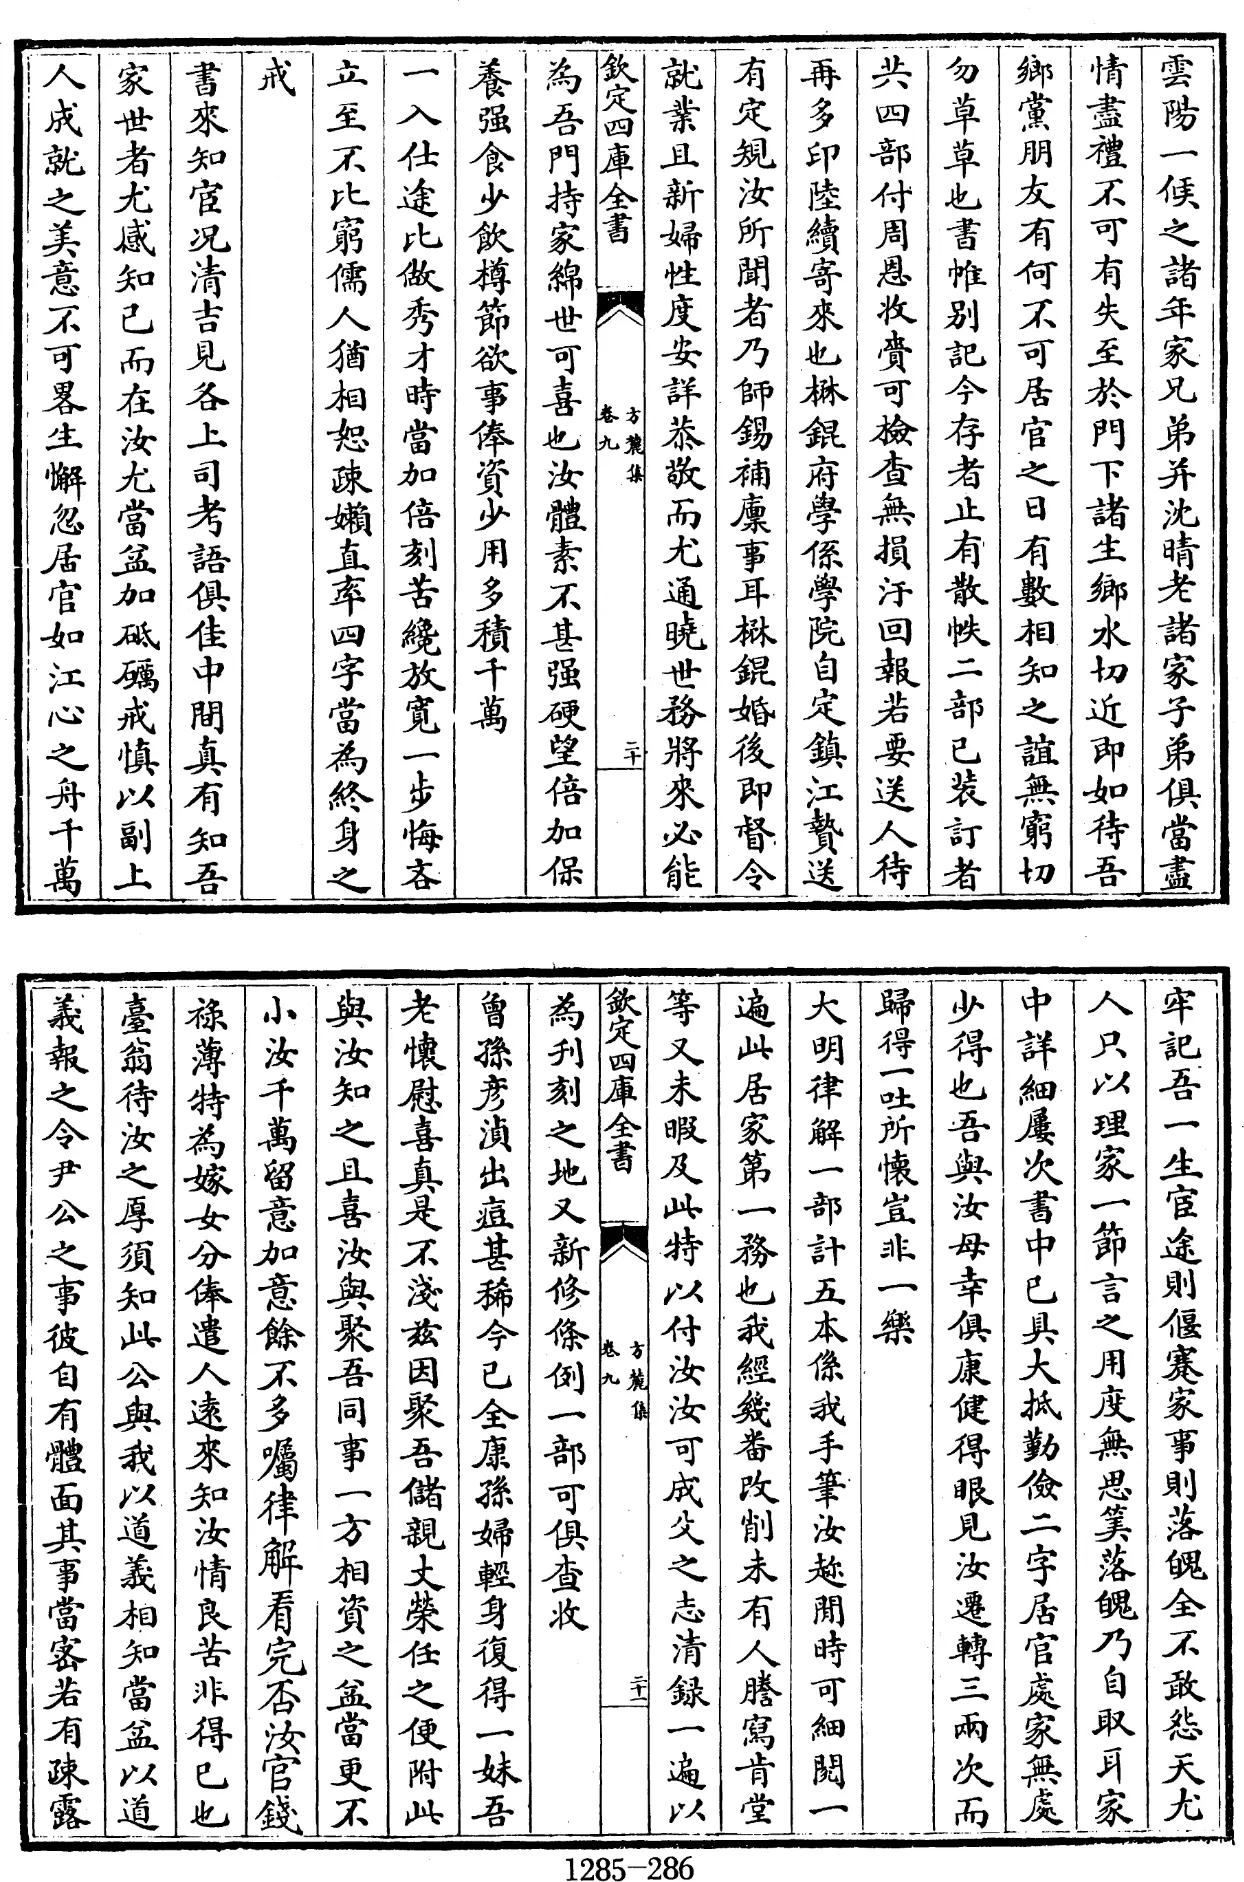 雲陽一候之諸年家兄弟并沈晴老諸家子弟俱當盡
情盡禮不可有失至於門下諸生鄉水切近即如待吾
鄉黨朋友有何不可居官之日有數相知之誼無窮切
勿草草也書帷别記今存者止有散帙二部已装訂者
共四部付周恩收賫可檢查無損汙回報若要送人待
再多印陸續寄來也楙錕府學係學院自定鎮江贄送
有定規汝所聞者乃師錫補廪事耳楙錕婚後即督令
就業且新婦性度安詳恭敬而尤通曉世務將來必能
欽定四庫全書
方麓集
卷九
二十
為吾門持家綿世可喜也汝體素不甚强硬望倍加保
養强食少飲樽節欲事俸資少用多積千萬
一入仕途比做秀才時當加倍刻苦纔放寛一步悔吝
立至不比窮儒人猶相恕疎嬾直率四字當為終身之
戒
書來知宦况清吉見各上司考語俱佳中間真有知吾
家世者尤感知己而在汝尤當益加砥礪戒慎以副上
人成就之美意不可畧生懈忽居官如江心之舟千萬
牢記吾一生宦途則偃蹇家事則落魄全不敢怨天尤
人只以理家一節言之用度無思筭落魄乃自取耳家
中詳細屢次書中已具大抵勤儉二字居官處家無處
少得也吾與汝母幸俱康健得眼見汝遷轉三兩次而
歸得一吐所懷豈非一樂
大明律解一部計五本係我手筆汝趂閒時可細閱一
遍此居家第一務也我經幾番改削未有人謄寫肯堂
等又未暇及此特以付汝汝可成父之志清録一遍以
欽定四庫全書
方麓集
卷九
二十一
為刋刻之地又新修條例一部可俱查收
曾孫彦湞出痘甚稀今已全康孫婦輕身復得一妹吾
老懷慰喜真是不淺兹因聚吾儲親丈榮任之便附此
與汝知之且喜汝與聚吾同事一方相資之益當更不
小汝千萬留意加意餘不多囑律解看完否汝官錢
祿薄特為嫁女分俸遣人遠來知汝情良苦非得已也
臺翁待汝之厚須知此公與我以道義相知當益以道
義報之令尹公之事彼自有體面其事當密若有疎露
1285-286